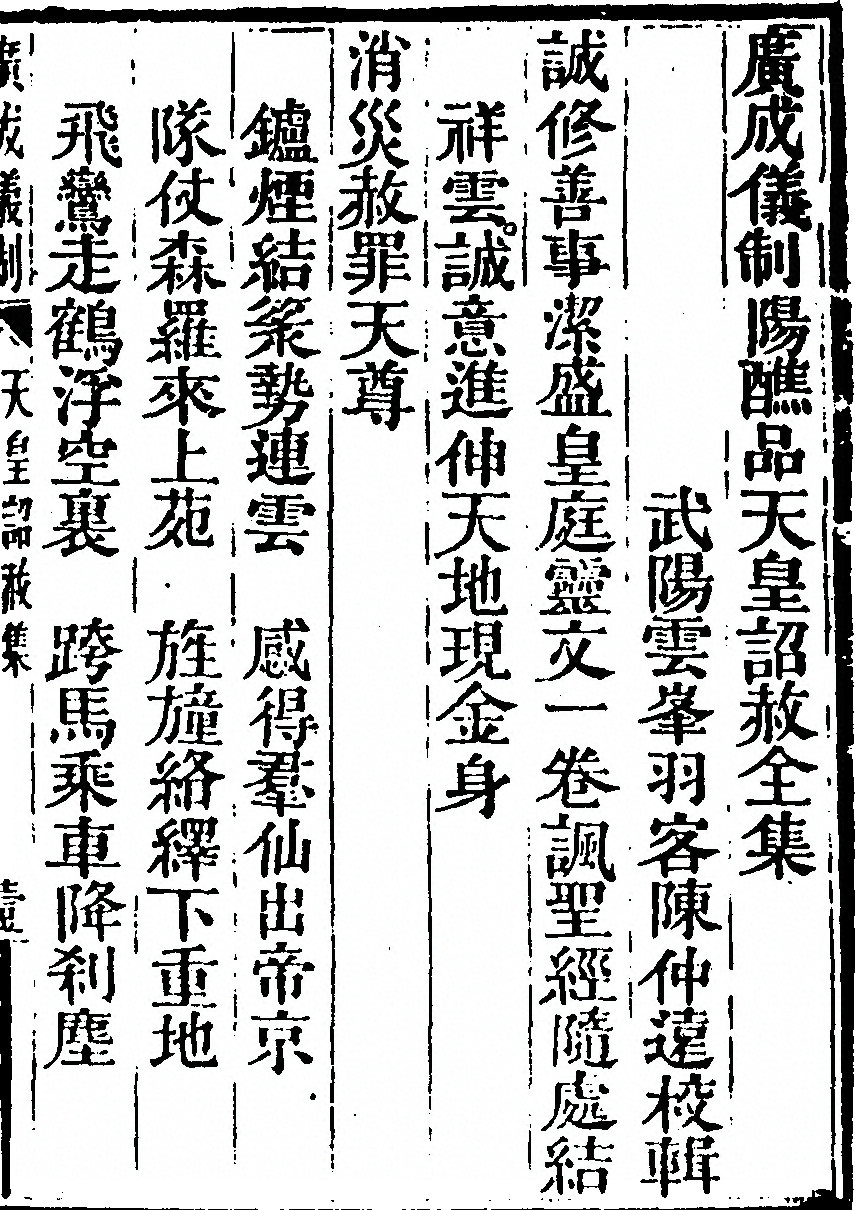 廣成儀制陽醮品天皇詔赦全集
武陽雲峯羽客陳仲遠校輯
誠修善事潔盛皇庭靈文一卷諷聖經隨處結
祥雲。誠意進伸天地現金身
消災赦罪天尊
鑪煙結篆勢連雲 感得羣仙出帝京
隊仗森羅來上苑 旌幢絡繹下重地
飛鸞走鶴浮空裏 跨馬乘車降刹塵
廣成儀制 天皇詔赦集 壹